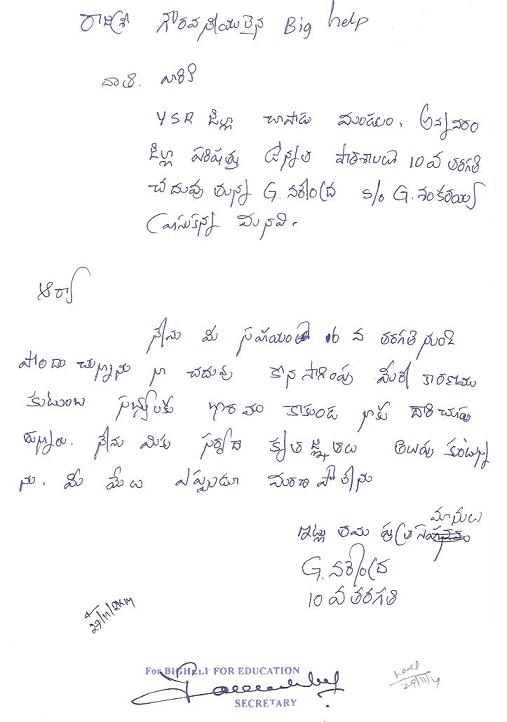 రాజశ్రీ గౌరవనీయులైన Big help
వారి. వారికి
YSR జిల్లా చాపాడు మండలం, అన్నవరం
జిల్లా పరిషత్తు ఉన్నత పాఠశాలలో 10వ తరగతి
చదువు తున్న G. నరేంద్ర s/o G. శంకరయ్య
వ్రాసుకున్న మనవి.
ఆర్యా
నేను మీ సహాయంతో 6 వ తరగతి నుండి
పొందు చున్నాను నా చదువు కొన సాగింపు మీరే కారణము
కుటుంబ సభ్యులకు భారం కాకుండ నాకు దారి చూపు
తున్నారు. నేను మీకు సర్వదా కృతజ్ఞతలు తెలుపు కుంటున్నా
ను. మీ మేలు ఎప్పుడూ మరచి పోలేను
ఇట్లు తమ పుత్ర సమానులు
G. నరేంద్ర
10 వ తరగతి
29/11/2014
For BIGHELP FOR EDUCATION
SECRETARY
29/11/14